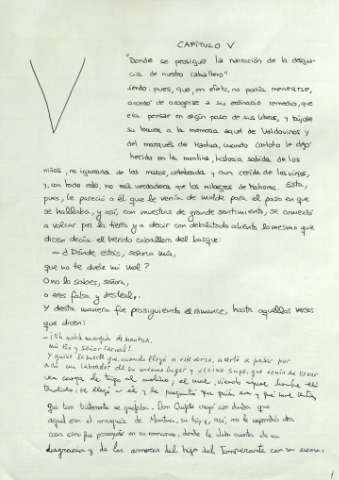 CAPÍTULO V
"Donde se prosigue la narración de la desgra-
cia de nuestro caballero"
V
iendo, pues, que, en efeto, no podía menearse,
acordó de acogerse a su ordinario remedio, que
era pensar en algún paso de sus libros, y trújole
su locura a la memoria aquel de Valdovinos y
del marqués de Mantua, cuando Carloto le dejó
herido en la montiña, historia sabida de los
niños, no ignorada de los mozos, celebrada y aun creída de los viejos,
y, con todo esto, no más verdadera que los milagros de Mahoma. Ésta,
pues, le pareció a él que le venía de molde para el paso en que
se hallaba, y así, con muestras de grande sentimiento, se comenzó
a volcar por la tierra y a decir con debilitado aliento lo mesmo que
dicen decía el herido caballero del bosque:
- ¿Dónde estás, señora mía,
que no te duele mi mal?
O no lo sabes, señora,
o eres falsa y desleal.
Y desta manera fue prosiguiendo el romance, hasta aquellos versos
que dicen:
- ¡Oh noble marqués de Mantua,
mi tío y señor carnal!
Y quiso la suerte que, cuando llegó a este verso, acertó a pasar por
allí un labrador de su mismo lugar y vecino suyo, que venía de llevar
una carga de trigo al molino; el cual, viendo aquel hombre allí
tendido, se llegó a él y le preguntó que quién era y qué mal sentía
que tan tristemente se quejaba. Don Quijote creyó sin duda que
aquel era el marqués de Mantua, su tío, y así, no le respondió otra
cosa sino fue proseguir en su romance, donde le daba cuenta de su
desgracia y de los amores del hijo del Emperante con su esposa
1